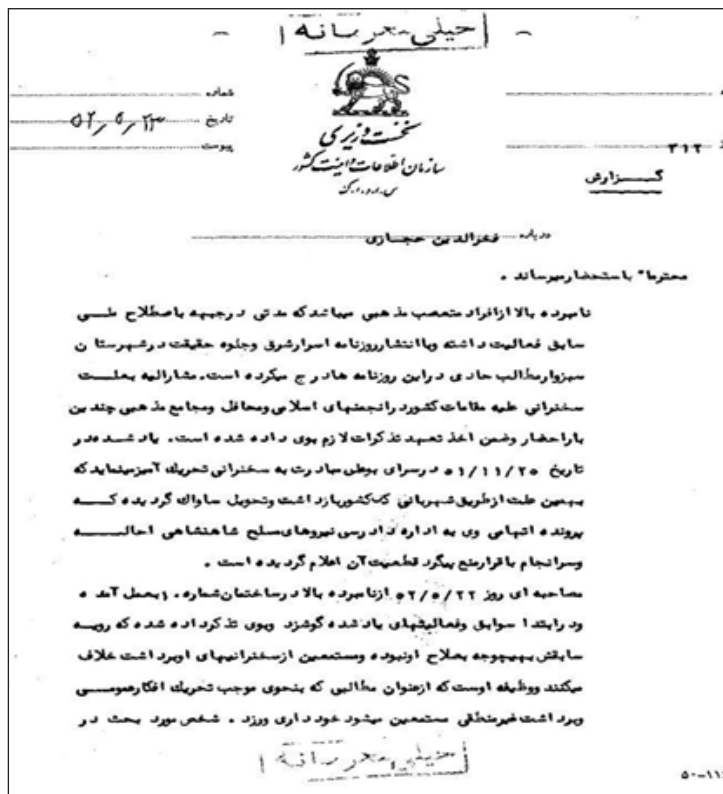 خیلی محرمانه
شماره
تاریخ ۵۲/۵/۲۳
پیوست
نخست وزیری
سازمان اطلاعات و امنیت کشور
س.ا.و.ا.ک
۳۱۲
گزارش
درباره فخرالدین حجازی
محترما" باستحضار میرساند .
نامبرده بالا از افراد متعصب مذهبی میباشد که مدتی در جبهه باصطلاح ملی
سابق فعالیت داشته و با انتشار روزنامه اسرار شرق و جلوه حقیقت در شهرستان
سبزوار مطالب حادی در این روزنامه ها درج میکرده است. مشارالیه بعلت
سخنرانی علیه مقامات کشور در انجمنهای اسلامی و محافل و مجامع مذهبی چندین
بار احضار و ضمن اخذ تعهد تذکرات لازم بوی داده شده است. یاد شده در
تاریخ ۵۱/۱۱/۲۵ در سرای بوعلی مبادرت به سخنرانی تحریک آمیز مینماید که
بهمین علت از طریق شهربانی کل کشور بازداشت و تحویل ساواک گردیده که
پرونده اتهامی وی به اداره دادرسی نیروهای مسلح شاهنشاهی احاله
و سرانجام با قرار منع پیگرد قطعیت آن اعلام گردیده است .
مصاحبه ای روز ۵۲/۵/۲۲ از نامبرده بالا در ساختمان شماره ۱۰ بعمل آمده
و در ابتدا سوابق و فعالیتهای یاد شده گوشزد و بوی تذکر داده شده که رویه
سابقش بهیچوجه بصلاح او نبوده و مستمعین از سخنرانیهای او برداشت خلاف
میکنند و وظیفه اوست که از عنوان مطالبی که بنحوی موجب تحریک افکار عمومی
و برداشت غیر منطقی مستمعین میشود خودداری ورزد . شخص مورد بحث در
خیلی محرمانه